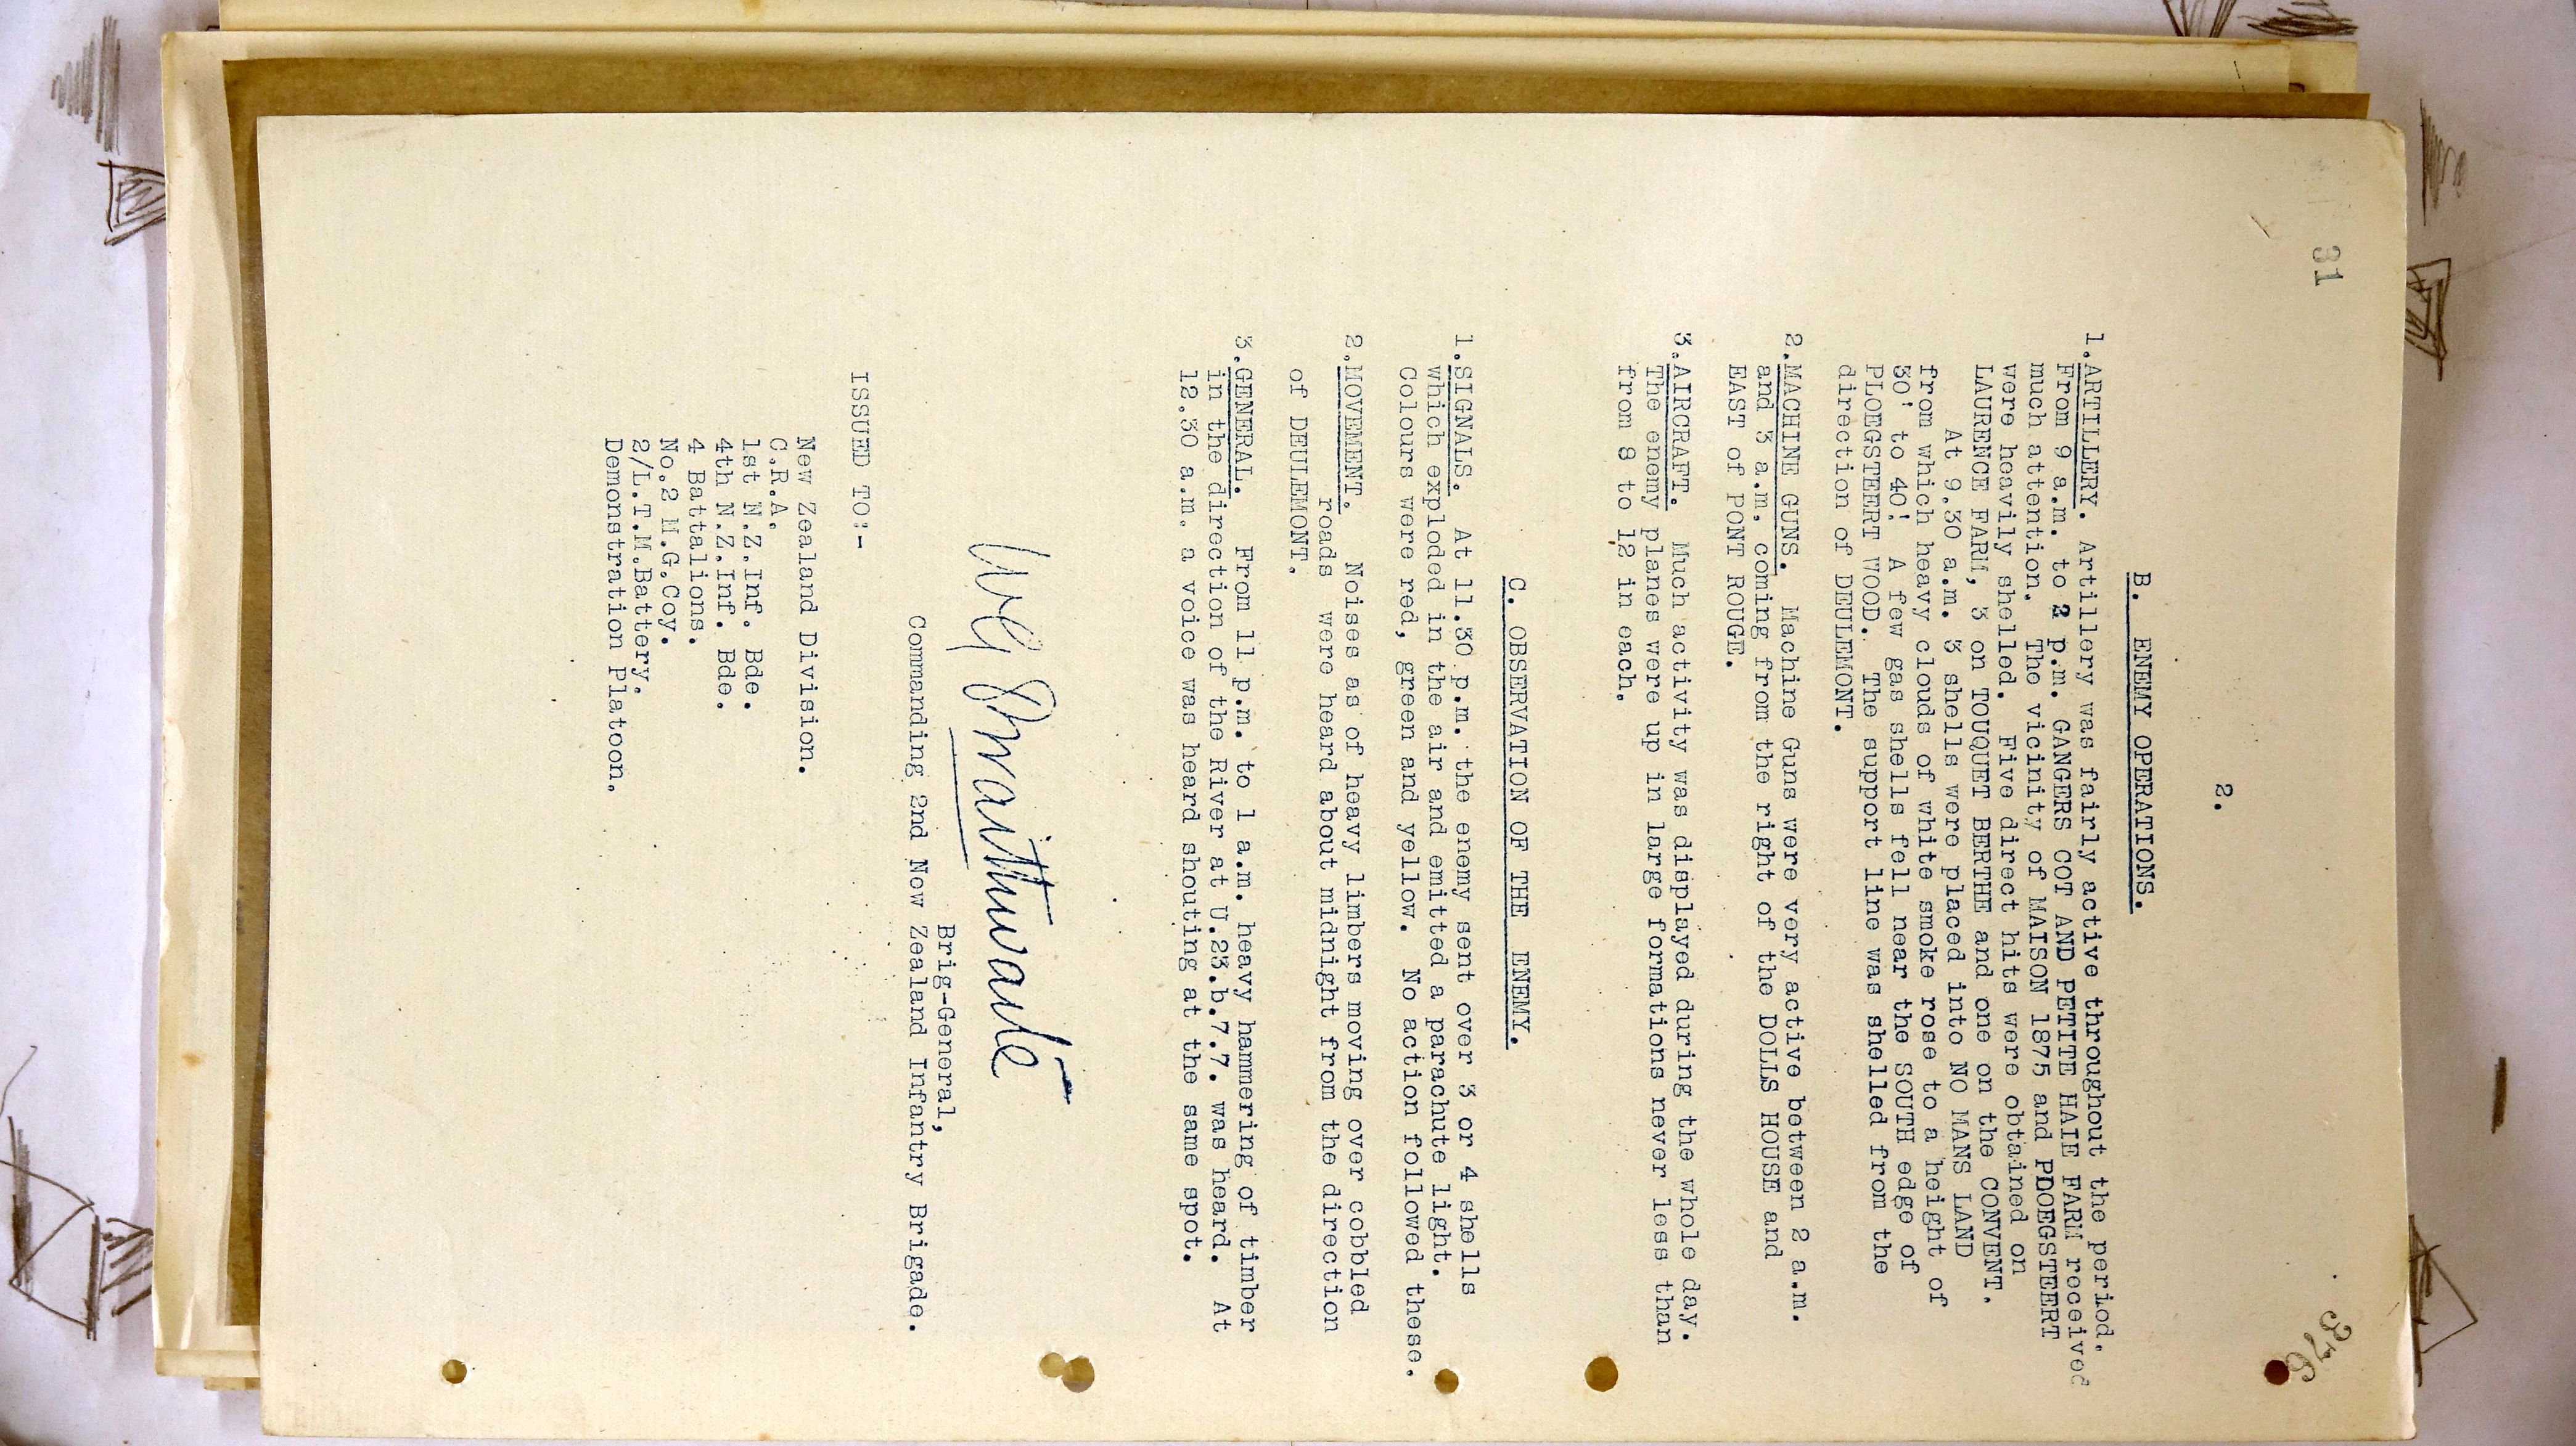 31
376
2.
B. ENEMY OPERATIONS.
1.ARTILLERY. Artillery was fairly active throughout the period.
From 9 a.m. to 2 p.m. GANGERS COT AND PETITE HAIE FARM received
much attention. The vicinity of MAISON 1875 and PDOEGSTEERT
were heavily shelled. Five direct hits were obtained on
LAURENCE FARM, 3 on TOUQUET BERTHE and one on the CONVENT.
At 9.30 a.m. 3 shells were placed into NO MANS LAND
from which heavy clouds of white smoke rose to a height of
30' to 40! A few gas shells fell near the SOUTH edge of
PLOEGSTEERT WOOD. The support line was shelled from the
direction of DEULEMONT.
2.MACHINE GUNS. Machine Guns were very active between 2 a.m.
and 3 a.m. coming from the right of the DOLLS HOUSE and
EAST of PONT ROUGE.
3.AIRCRAFT. Much activity was displayed during the whole day.
The enemy planes were up in large formations never less than
from 8 to 12 in each.
C. OBSERVATION OF THE ENEMY.
1.SIGNALS. At 11.30 p.m. the enemy sent over 3 or 4 shells
which exploded in the air and emitted a parachute light.
Colours were red, green and yellow. No action followed these.
2.MOVEMENT. Noises as of heavy limbers moving over cobbled
roads were heard about midnight from the direction
of DEULEMONT.
3.GENERAL. From 11 p.m. to 1 a.m. heavy hammering of timber
in the direction of the River at U.23.b.7.7. was heard. At
12.30 a.m. a voice was heard shouting at the same spot.
WG Braithwaite
Brig-General,
Commanding 2nd Now Zealand Infantry Brigade.
ISSUED TO:-
New Zealand Division.
C.R.A.
1st N.Z.Inf. Bde.
4th N.Z.Inf. Bde.
4 Battalions.
No.2 M.G.Coy.
2/L.T.M.Battery.
Demonstration Platoon.